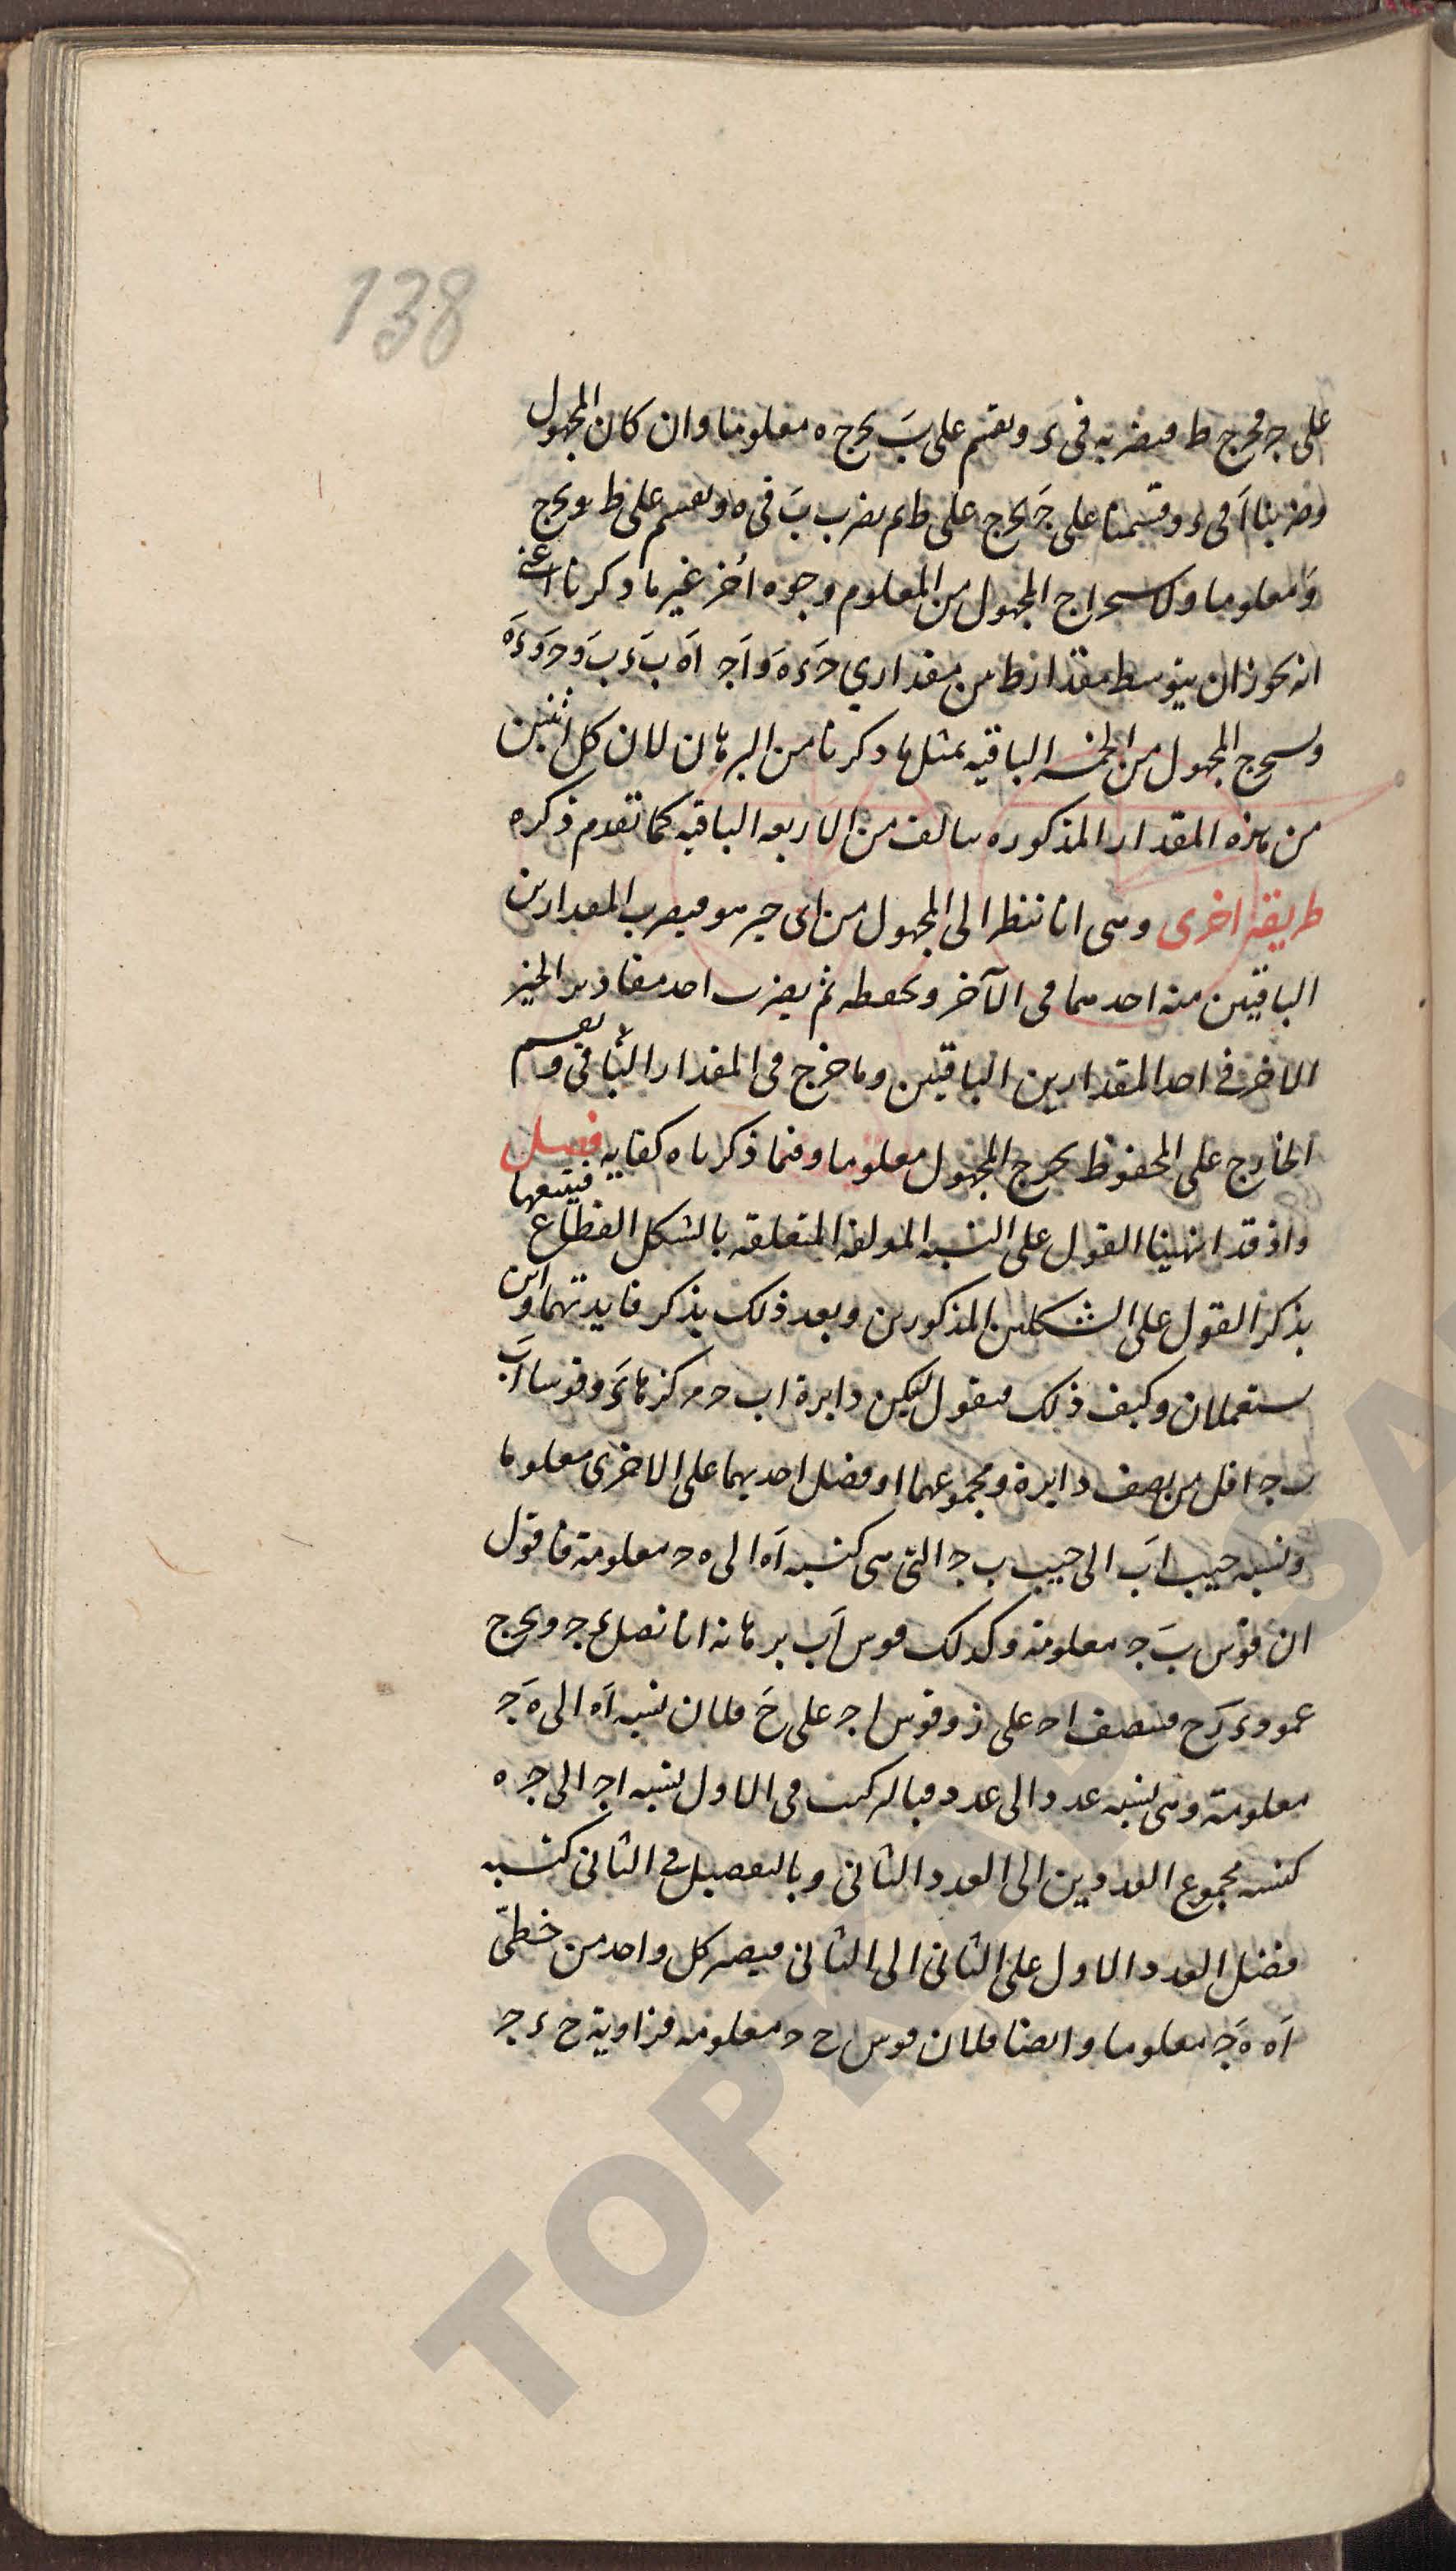 138
على جـ فيخرج ط فيضربه فى ء ويقسم على ب يخرج ه معلوما وان كان المجهول
وضربنا ا فى ء وقسمنا على جـ يخرج على ط ثم يضرب ب فى ه ويقسم على ط ويخرج
و معلوما ولاستخراج المجهول من المعلوم وجوه أخر غير ما ذكرنا اعنى
انه يجوز ان يتوسط مقدار ط بين مقدارى
ويستخرج المجهول من الخمسه الباقيه بمثل ما ذكرنا من البرهان لان كل اثنين
من هذه المقدار المذكوره يتالف من الاربعه الباقيه كما تقدم ذكره
طريقه اخرى وهى انا ننظر الى المجهول من اى حيز هو فيضرب المقدارين
الباقيين منه احدهما فى الآخر ويحفظه ثم يضرب احد مقادير الحيز
الاخر فى احد المقدارين الباقيين وما خرج فى المقدار الثانى ويقسم
الخارج على المحفوظ يخرج المجهول معلوما وفيما ذكرناه كفايه فصل
واذ قد انهينا القول على النسبه المولفه المتعلقه بالشكل القطاع فيتبعها
بذكر القول على الشكلين المذكورين وبعد ذلك يذكر فايدتهما واين
يستعملان وكيف ذلك فيقول ليكن دايرة ا ب ح مركزها ء وقوسا اب
ب جـ اقل من نصف دايرة ومجموعهما او فضل احديهما على الاخرى معلوما
ونسبه جيب اب الى جيب ب جـ التى هى كنسبه اه الى ه ح معلومة فاقول
ان قوس ب جـ معلومة وكذلك قوس اب برهانه انا نصل ء جـ ويخرج
عمود ء ز ح فينصف ا ح على ز وقوس ا جـ على ح فلان نسبه اه الى ه جـ
معلومة وهى نسبه عدد الى عدد فبالتركيب فى الاول نسبه ا جـ الى جـ ه
كنسبه مجموع العددين الى العدد الثانى وبالتفصيل فى الثانى كنسبه
فضل العدد الاول على الثانى الى الثانى فيصير كل واحد من خطىّ
اه ه جـ معلوما وايضا فلان قوس ح ح معلومه فزاوية ح ء جـ
TOPKAPI SA